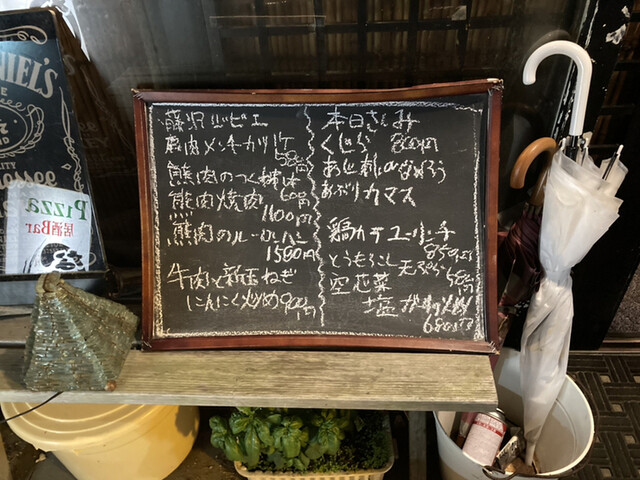 NIEL'S
Pizza
居酒Bar
藤沢ジビエ
鹿肉メンチカツ1ケ
580円
熊肉のつくね1本
600円
熊肉焼肉
1100円
熊肉のルーローハン
1500円
牛肉と新玉ねぎ
にんにく炒め900円
本日さしみ
くじら 800円
あじ刺 or なめろう
あぶりカマス
鶏カチューリッチ
850円
とうもろこし天ぷら
580円
空芯菜
塩ガーリック炒め
680円